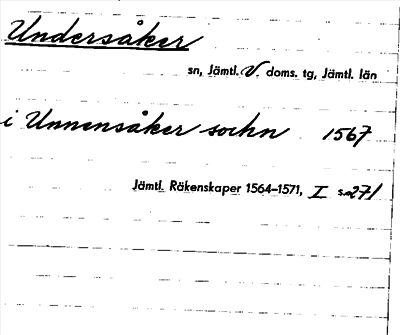 Undersåker
sn, Jämtl. V. doms. tg, Jämtl. län
i Unnensåker sochn 1567
Jämtl. Räkenskaper 1564-1571, I s. 271